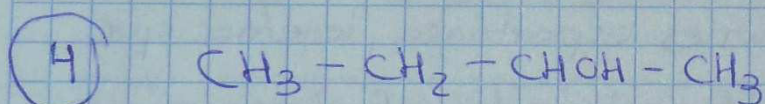 4 CH₃ - CH₂ - CHOH - CH₃